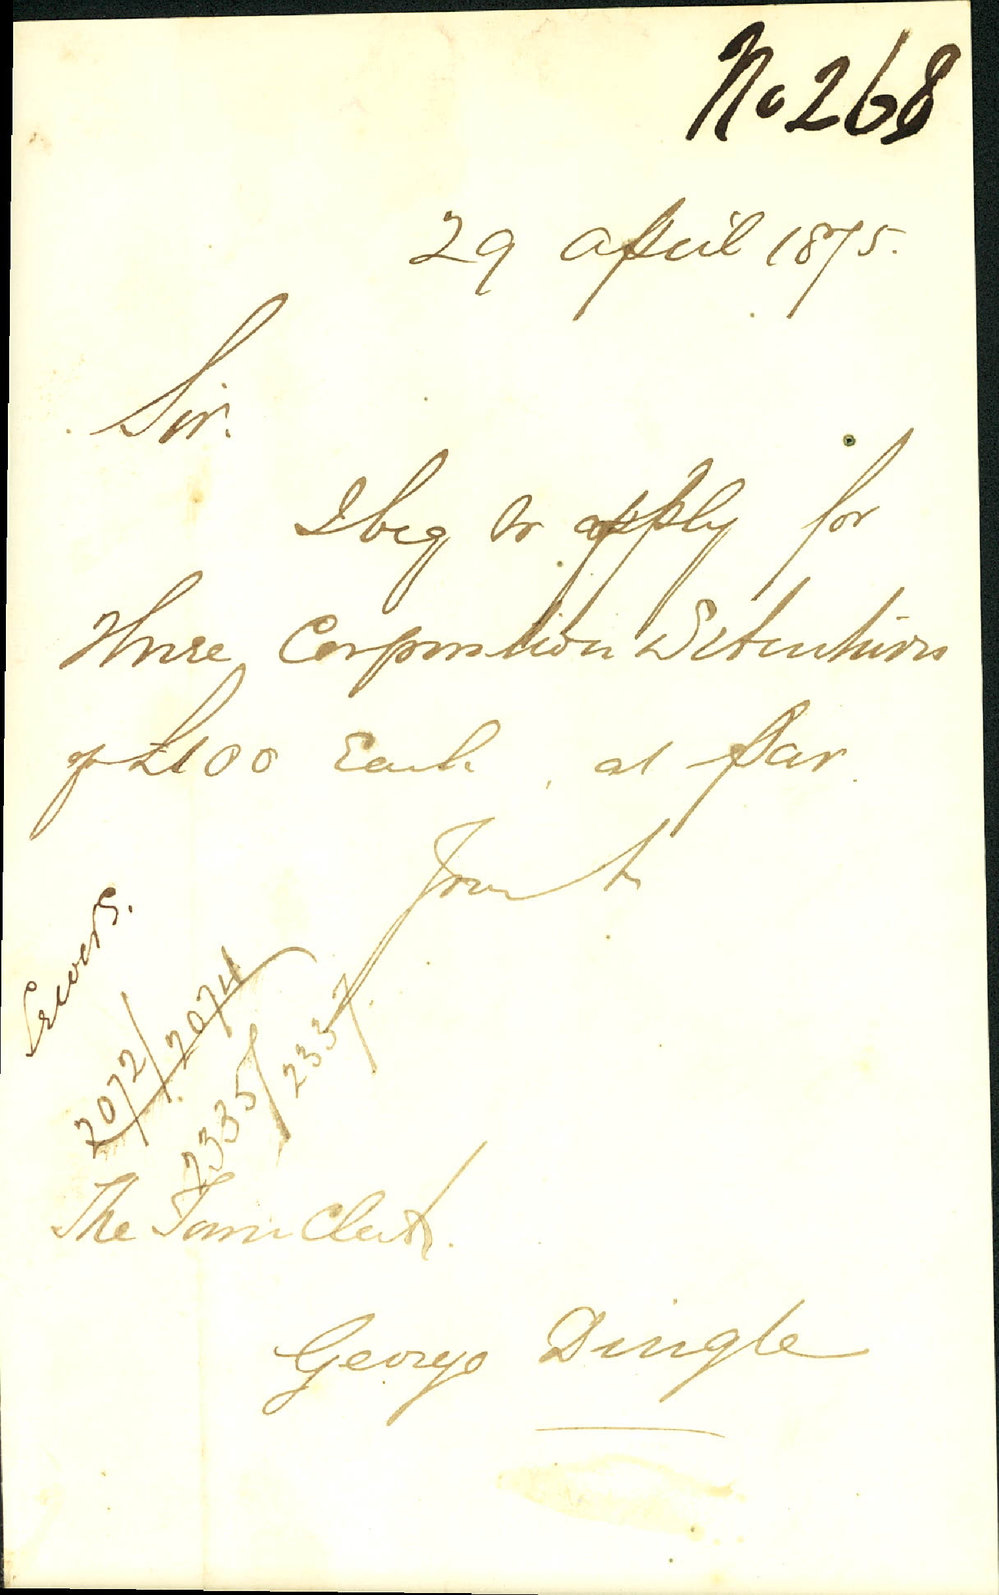 No 268
29 April 1875.
Sir.
I beg to apply for
three Corporation Debentures
of £100 Each, at par.
Yours &c
2072/2074
2335/2337.
The Town Clerk.
George Dingle